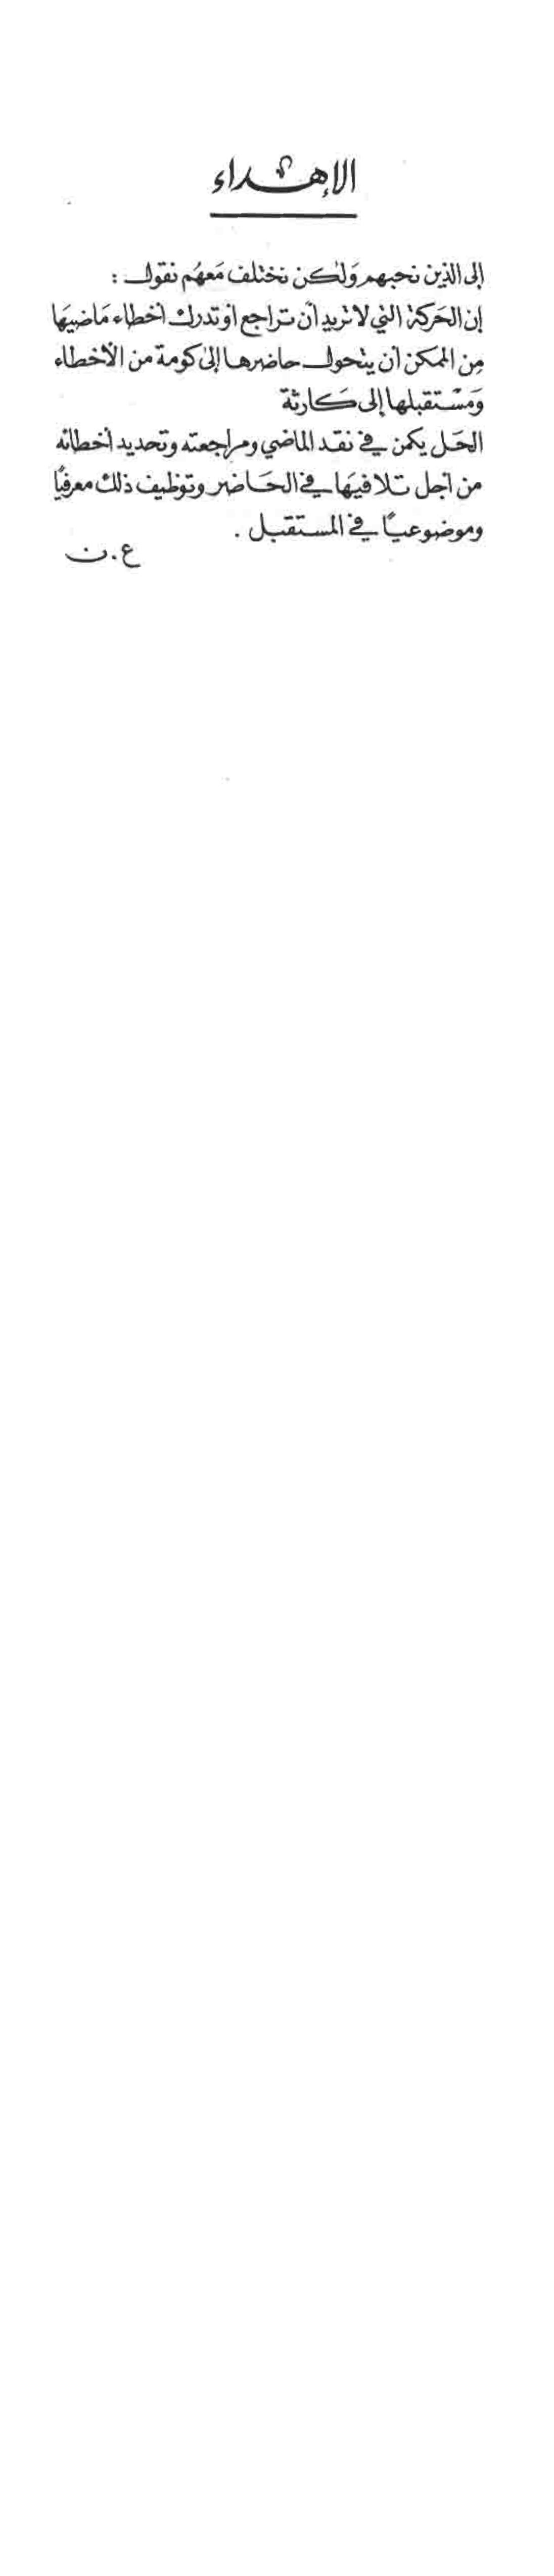 الإهداء
إلى الذين نحبهم وَلكن نختلف مَعهُم نقول :
إن الحَركة التي لا تريد أن تراجع أو تدرك أخطاء مَاضيهَا
مِن الممكن أن يتحول حاضرها إلى كومة من الأخطاء
وَمسْتقبلها إلى كارثة
الحَل يكمن في نقد الماضي ومراجعته وتحديد أخطائه
من أجل تلافيهَا في الحَاضر وتوظيف ذلك معرفيًا
وموضوعيًا في المستقبل .
ع . ن